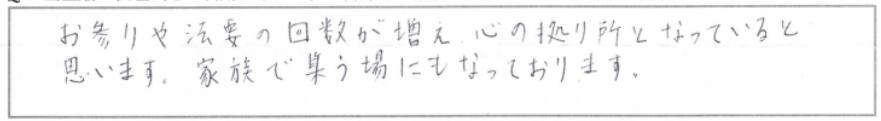 お参りや法要の回数が増え、心の拠り所となっていると
思います。家族で集う場にもなっております。